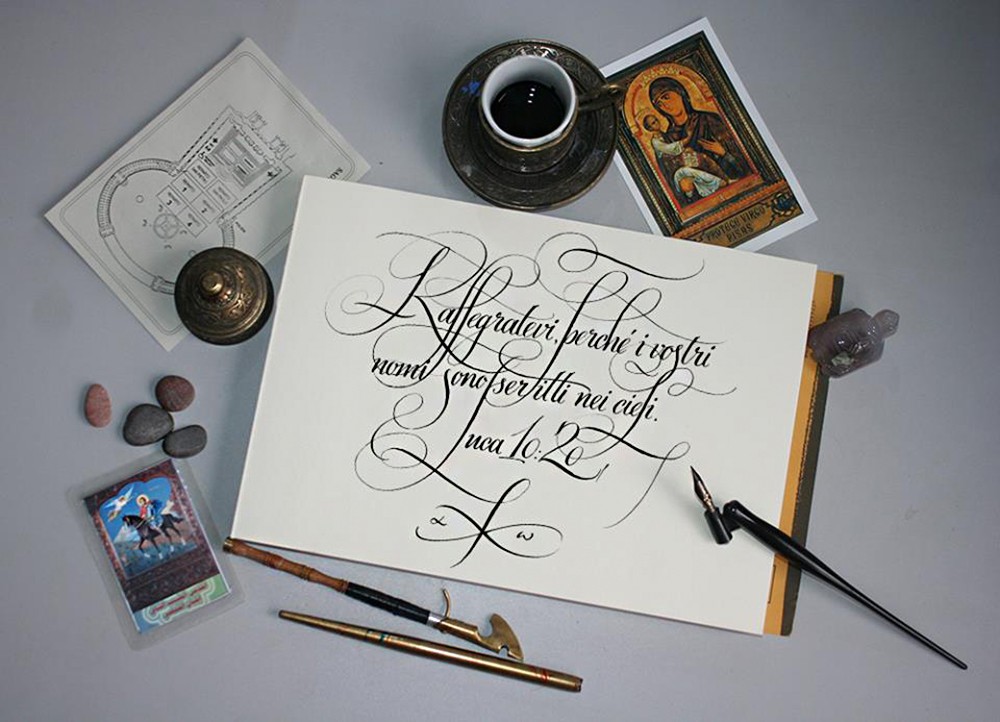 Rallegratevi, perché i vostri
nomi sono scritti nei cieli.
Luca 10:20
α ω
VIRGO